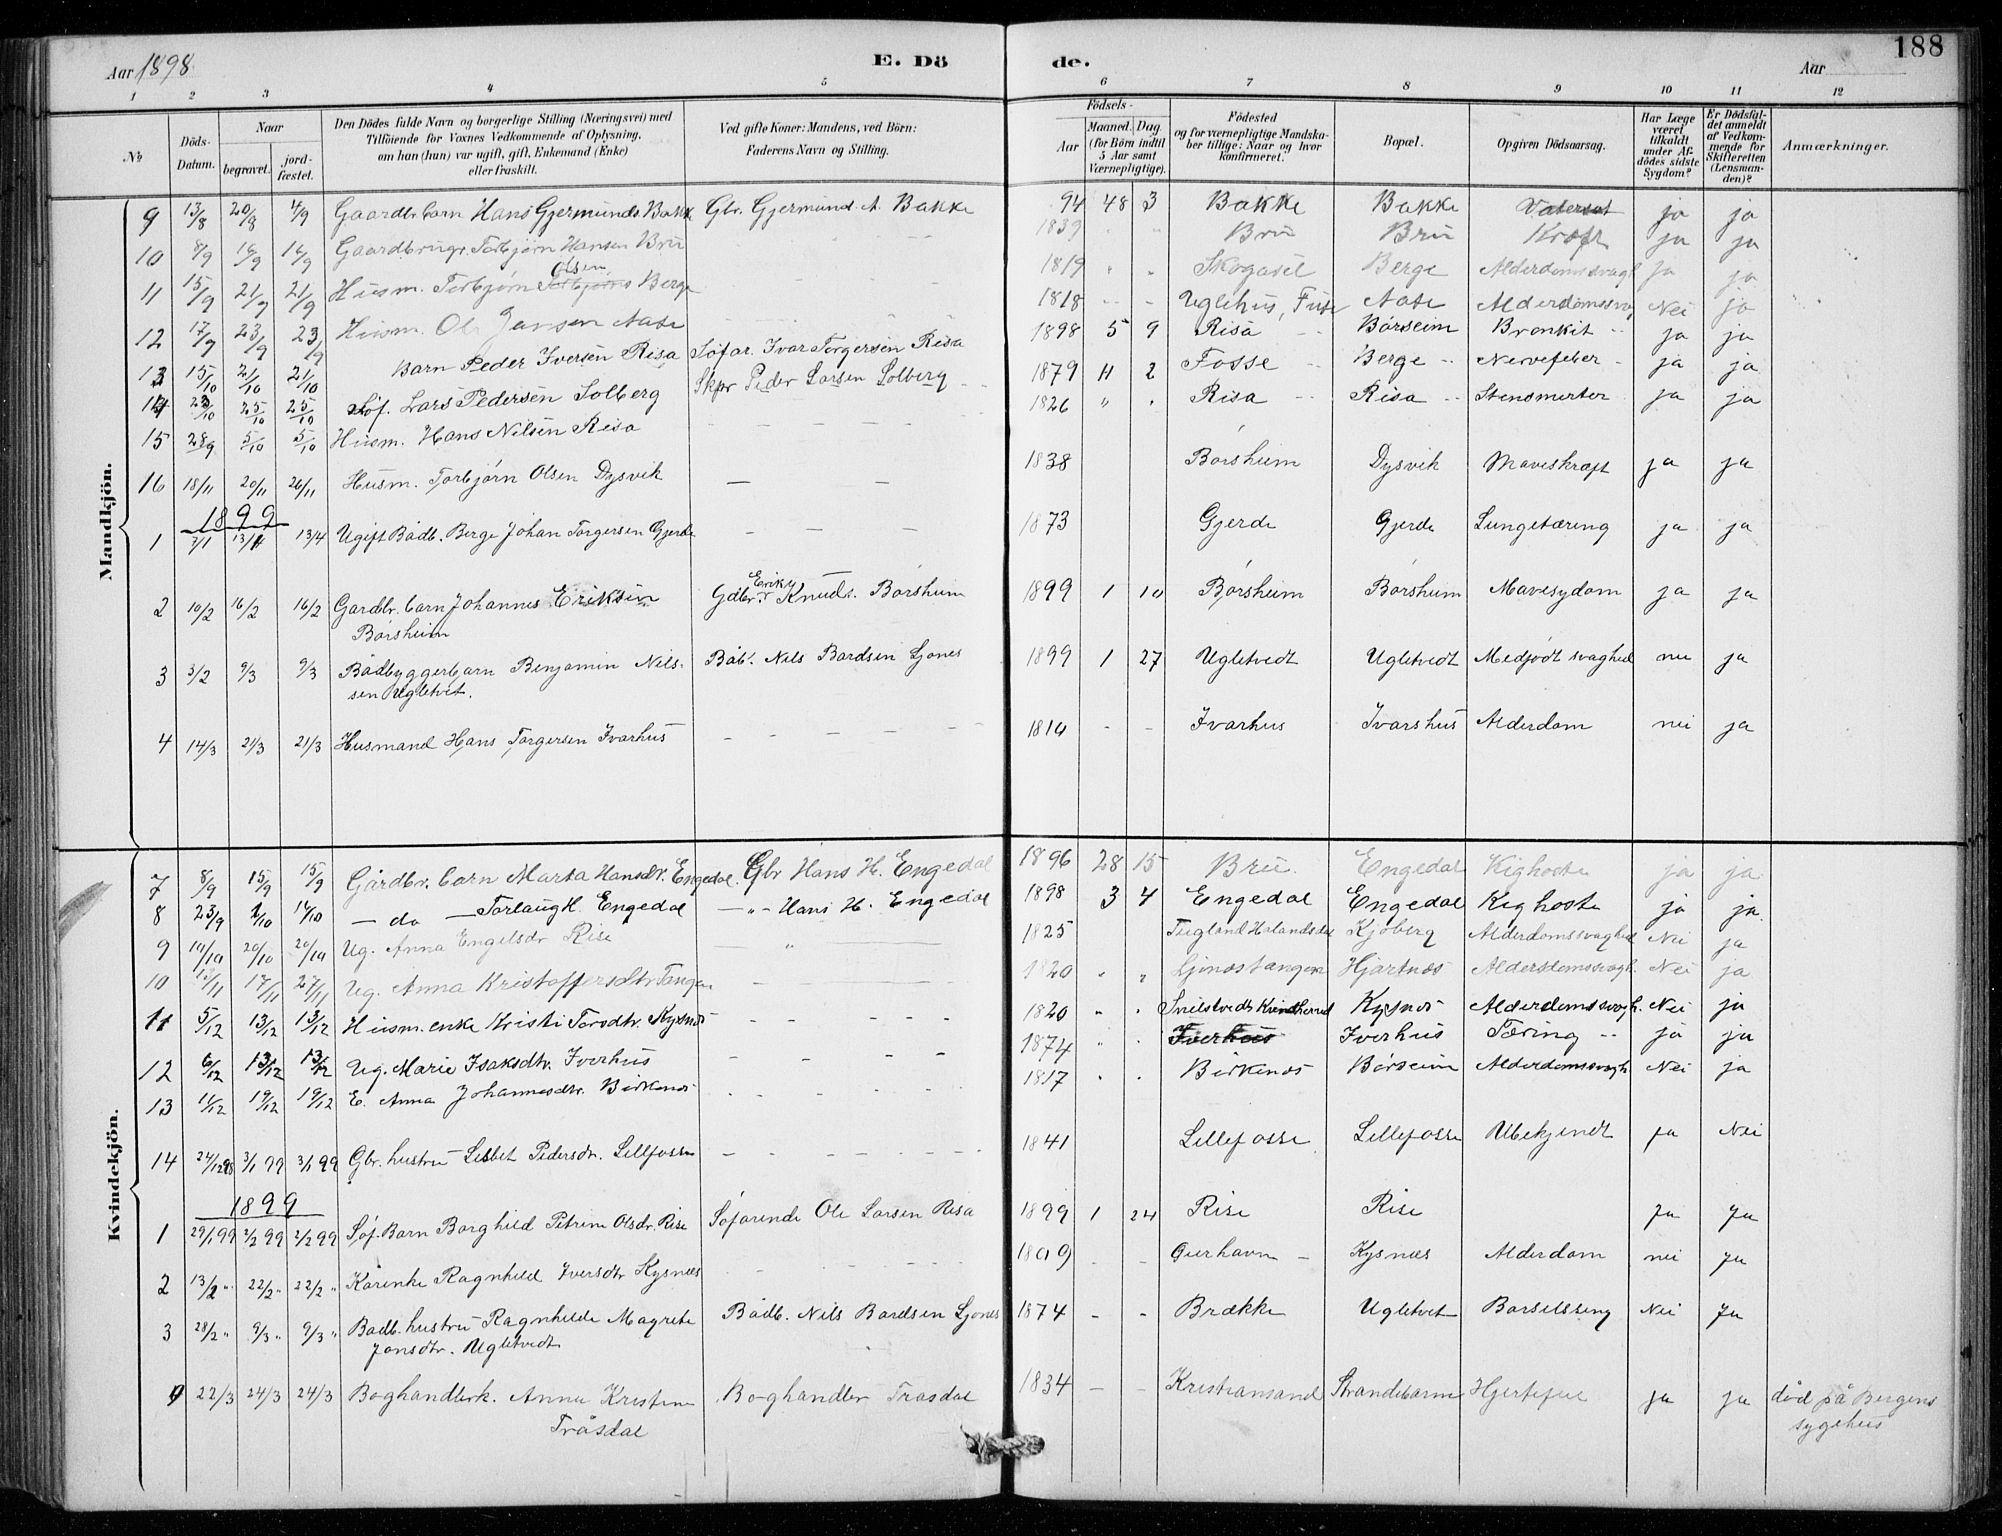 Aar 1898
E. Dö
de.
Aar
188
1 2 3 4 5 6 7 8 9 10 11 12
No
Döds-Datum.
Naar
begravet.
jord-fæstet.
Den Dödes fulde Navn og borgerlige Stilling (Næringsvei) med
Tilföiende for Voxnes Vedkommende af Oplysning,
om han (hun) var ugift, gift, Enkemand (Enke)
eller fraskilt.
Ved gifte Koner: Mandens, ved Börn:
Faderens Navn og Stilling.
Födsels-
Aar
Maaned. Dag.
(for Börn indtil
5 Aar samt
Værnepligtige).
Födested
og for værnepligtige Mandska-
ber tillige: Naar og hvor
konfirmeret.
Bopæl.
Opgiven Dödsaarsag.
Har Læge
været
tilkaldt
under Af-
dödes sidste
Sygdom?
Er Dödsfal-
det anmeldt
af Vedkom-
mende for
Skifteretten
(Lensman-
den)?
Anmærkninger.
Mandkjön.
9 13/8 20/8 4/9 Gaardbr. barn Hans Gjermunds. Bakke Gbr. Gjermund A. Bakke 94 48 3 Bakke Bakke Vatersot ja ja
10 8/9 14/9 14/9 Gaardbruger Torbjørn Hansen Bru 1839 " " Bru Bru Kræft ja ja
11 15/9 21/9 21/9 Husm. Torbjørn Torbjørns Olsen Berge 1819 " " Skogasel Berge Alderdomssvagh. ja ja
12 17/9 23/9 23/9 Husm. Ole Jansen Aase 1818 - - Uglehus, Fuse Aase Alderdomssv. Nei ja
13 15/10 21/10 21/10 Barn Peder Iversen Risa Søfar. Ivar Torgersen Risa 1898 5 9 Risa Børseim Bronkit ja ja
14 23/10 25/10 25/10 Søf. Lars Pedersen Solberg Skpr Peder Larsen Solberg 1879 11 2 Fosse Berge Nervefeber ja ja
15 28/9 5/10 5/10 Husm. Hans Nilsen Risa 1826 " " Risa Risa Stensmerter ja ja
16 18/11 20/11 26/11 Husm. Torbjørn Olsen Dysvik — — 1838 Børsheim Dysvik Mavekræft ja ja
1899
1 7/1 13/1 13/4 Ugift Bådb. Berge Johan Torgersen Gjerde — — — 1873 Gjerde Gjerde Lungetæring ja ja
2 10/2 16/2 16/2 Gardbr. barn Johannes Eriksen Gdbr. Erik Knuds. Børsheim 1899 1 10 Børsheim Børsheim Mavesydom ja ja
Børsheim
3 3/2 9/3 9/3 Bådbyggerbarn Benjamin Nils- Båb. Nils Bardsen Ljones 1899 1 27 Ugletvedt Ugletvedt Medfødt svaghed nei ja
sen Ugletvet.
4 14/3 21/3 21/3 Husmand Hans Torgersen Ivarhus - - - - - 1814 - - Ivarhus Ivarshus Alderdom nei ja
Kvindekjön.
7 8/9 15/9 15/9 Gårdbr. barn Marta Hansdr. Engedal. Gbr Hans H. Engedal 1896 28 15 Bru. Engedal Kighoste ja ja
8 23/9 2/10 14/10 — do — Torlaug H. Engedal — " - Hans H. Engedal 1898 3 4 Engedal Engedal Kighoste ja ja.
9 14/10 20/10 20/10 Ug. Anna Engelsdr Rise " 1825 Tugland Hålandsdal Kjøberg Alderdomssvaghed Nei ja
10 13/11 17/11 27/11 Ug. Anna Kristoffersdtr Tangen 1820 " " Ljonestangen Hjartnæs Alderdomssvagh. Nei ja
11 5/12 13/12 13/12 Husm. enke Kristi Torsdtr. Kysnæs - - - - - 1820 " " Snilstvedt Kvindherred Kysnæs Alderdomssvagh. Nei ja
12 6/12 13/12 13/12 Ug. Marie Isaksdtr. Iverhus - - - - 1874 " " Iverhus Iverhus Tæring ja ja
13 11/12 19/12 19/12 E. Anna Johannesdtr. Birkenæs 1817 " " Birkenæs Børseim Alderdomssvagh Nei ja
14 24/12 98 3/1 99 3/1 99 Gbr. hustru Lisbet Pedersdr. Lillefosse - - - - - 1841 Lillefosse Lillefosse Ubekjendt ja Nei
1899
1 29/1 99 2/2 99 2/2 99 Søf. Barn Borghild Petrine Olsdr. Rise Søfarende Ole Larsen Risa 1899 1 24 Rise Rise Ja Ja
2 13/2 " 22/2 " 22/2 " Kårenke Ragnhild Iversdtr Kysnæs 1809 - - Gierhavn Kysnæs Alderdom nei Ja
3 28/2 " 9/3 " 9/3 " Bådb. hustru Ragnhilde Magrete Bådb. Nils Bardsen Ljones 1874 - - Brække Ugletvet Barselsseng Nei Ja
Jonsdtr. Ugletvedt
4 22/3 24/3 24/3 Boghandlerk. Anne Kristine Boghandler Tråsdal 1834 - - Kristiansand Strandebarm Hjertefeil ja ja død på Bergens
Tråsdal sygehus